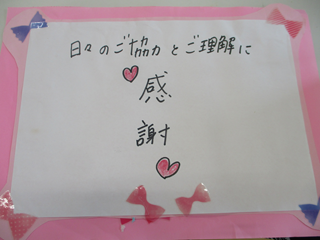 日々のご協力とご理解に
感
謝